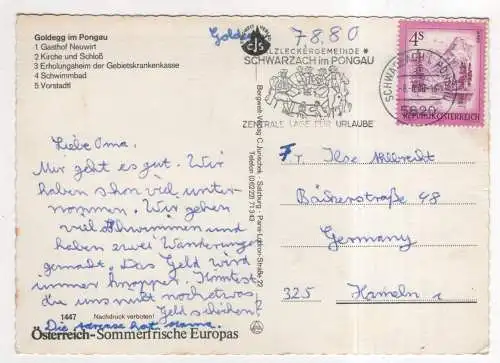 Goldegg im Pongau
1 Gasthof Neuwirt
2 Kirche und Schloß
3 Erholungsheim der Gebietskrankenkasse
4 Schwimmbad
5 Vorstadtl
Goldegg 7.8.80
cjs
Bergwelt-Verlag C. Jurischek · Salzburg · Paris-Lodron-Straße 22
Telefon (06222) 71 3 43
SALZLECKERGEMEINDE
SCHWARZACH im PONGAU
ZENTRALE LAGE FÜR URLAUBE
SCHWARZACH I. PONGAU
5620
4 S
REPUBLIK ÖSTERREICH
Liebe Oma.
Mir geht es gut. Wir
haben schon viel unter-
nommen. Wir gehen
viel schwimmen und
haben zwei Wanderungen
gemacht. Das Geld wird
immer knapper. Könntest
du uns nicht noch etwas
Geld schicken?
Die adresse hat mama.
Fr. Ilse Albrecht
Bäckerstraße 48
Germany
325 Hameln 1
1447 Nachdruck verboten!
Österreich-Sommerfrische Europas